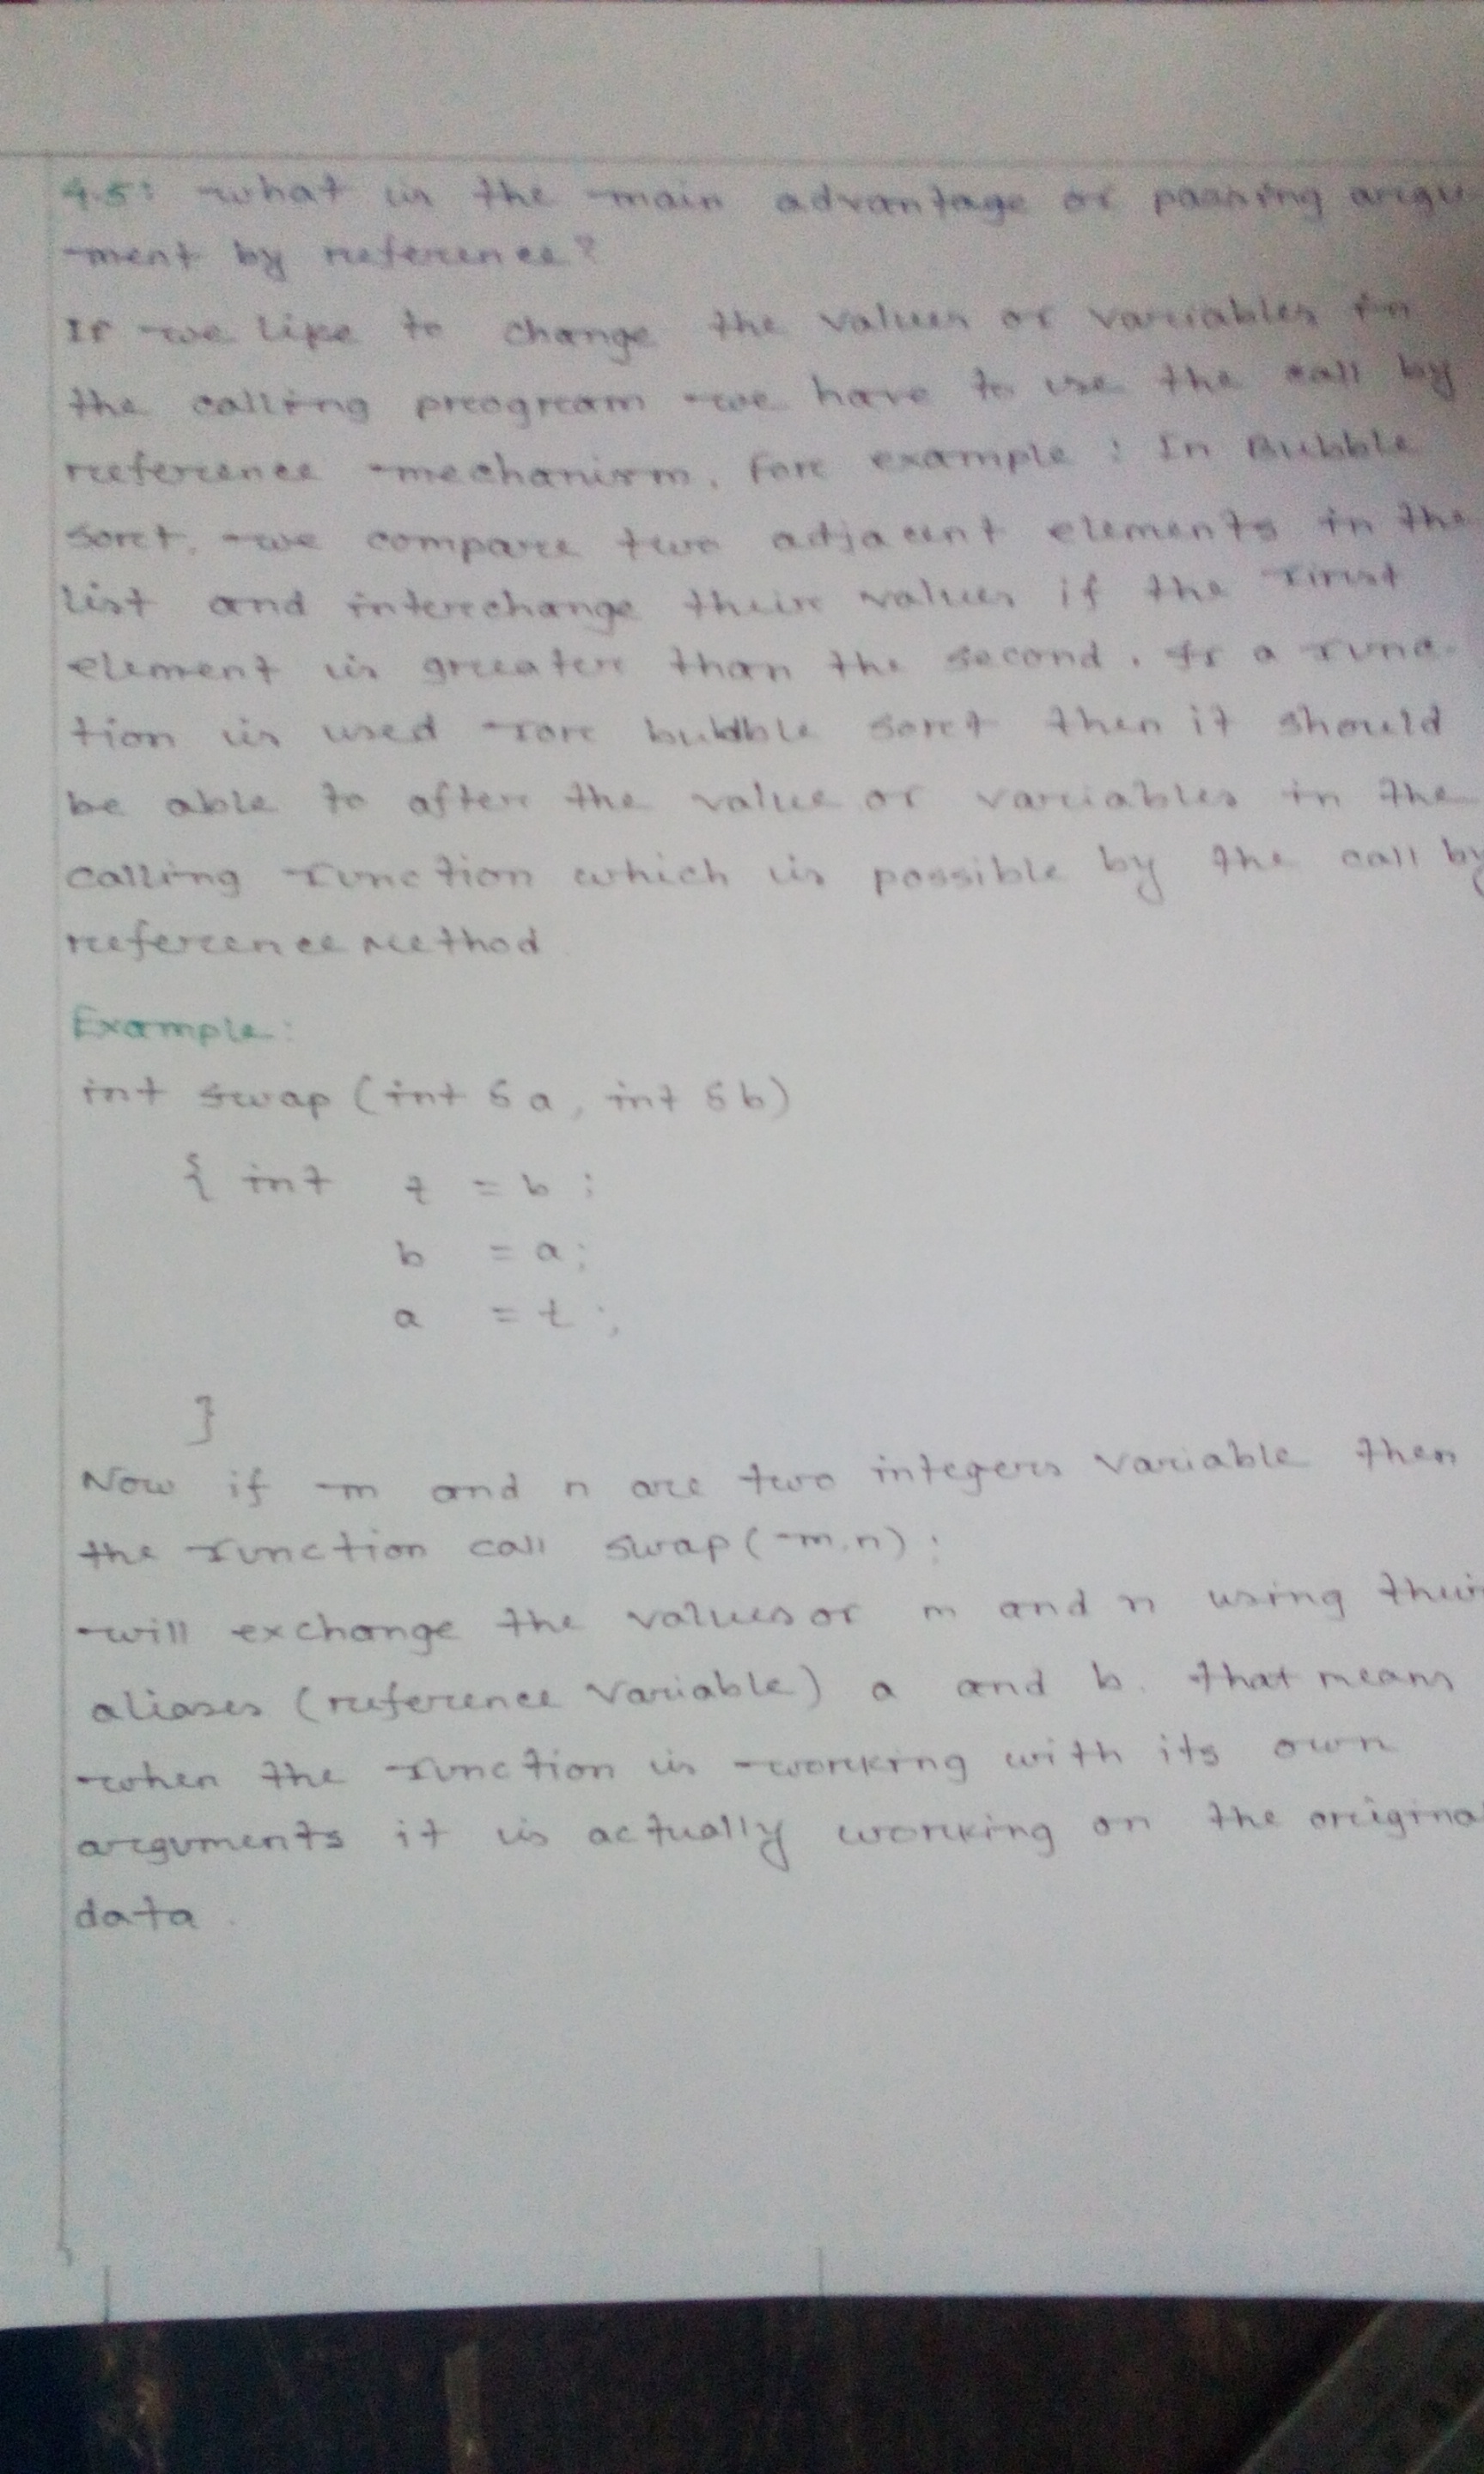 4.5: what is the main advantage of passing argu
-ment by reference?
If we like to change the values of variables in
the calling program we have to use the call by
reference mechanism. For example : In Bubble
sort, we compare two adjacent elements in the
list and interchange their values if the first
element is greater than the second. If a func-
tion is used for bubble sort then it should
be able to after the value of variables in the
calling function which is possible by the call by
reference method
Example:
int swap (int & a, int & b)
{ int t = b ;
b = a;
a = t ;
}
Now if m and n are two integers variable then
the function call swap(m,n) ;
will exchange the values of m and n using their
aliases (reference variable) a and b. that means
when the function is working with its own
arguments it is actually working on the original
data.